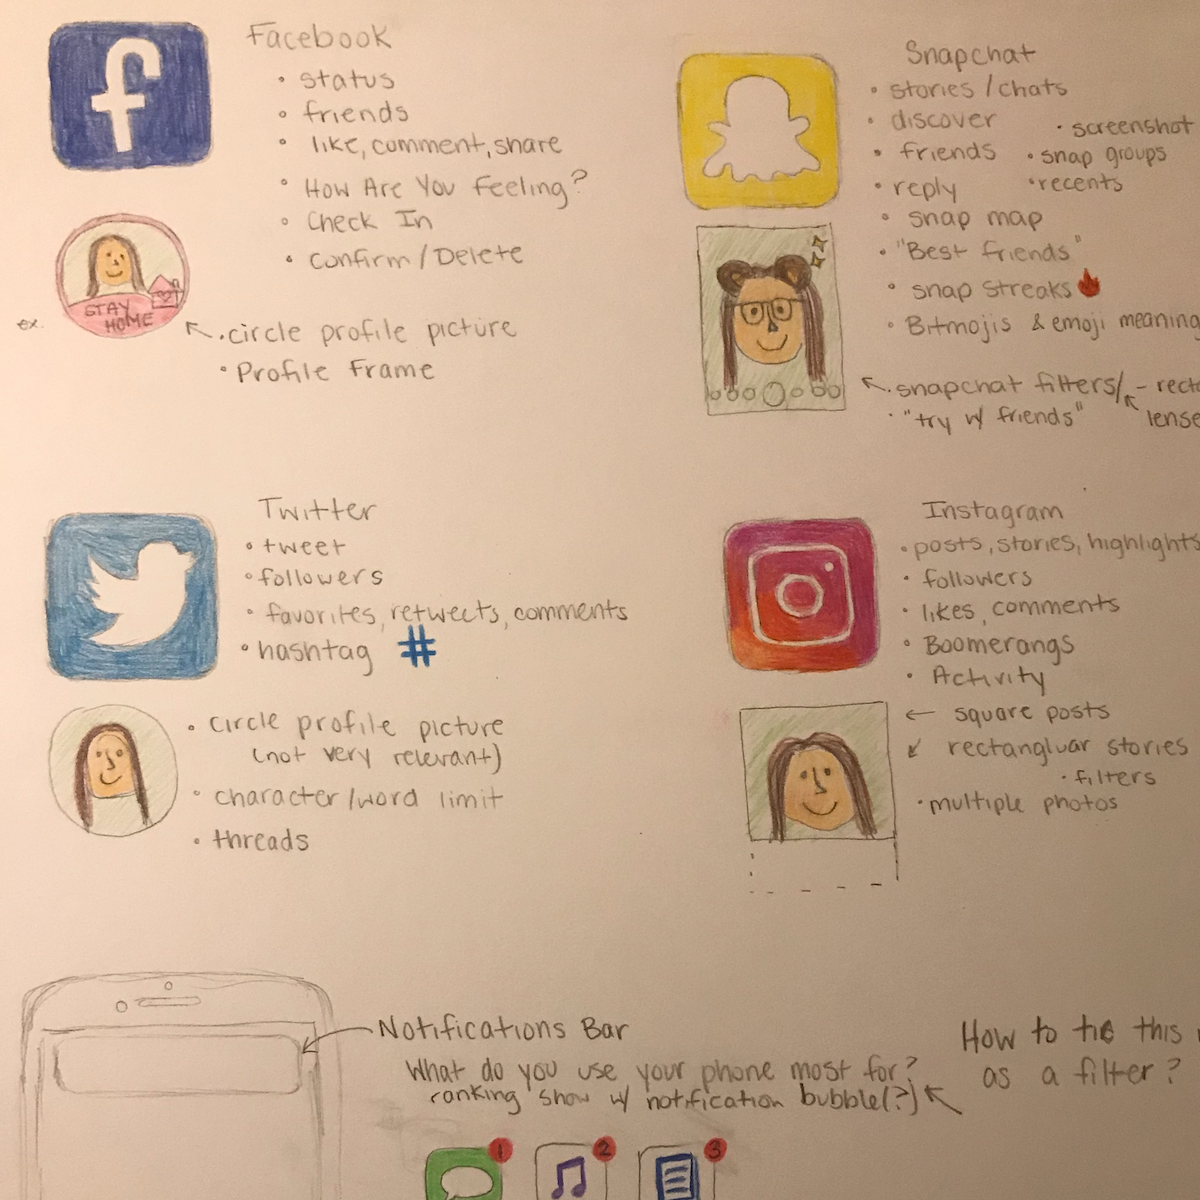 Facebook
• status
• friends
• like, comment, share
• How Are You Feeling?
• Check In
• Confirm/Delete
STAY
HOME
ex.
• circle profile picture
• Profile Frame
Snapchat
• stories/chats
• discover
• screenshot
• friends
• snap groups
• reply
• recents
• snap map
• "Best friends"
• snap streaks
• Bitmojis & emoji meaning
• snapchat filters/
• "try w/ friends"
Twitter
• tweet
• followers
• favorites, retweets, comments
• hashtag #
• circle profile picture
(not very relevant)
• character/word limit
• threads
Instagram
• posts, stories, highlights
• followers
• likes, comments
• Boomerangs
• Activity
square posts
rectangluar stories
• filters
• multiple photos
Notifications Bar
What do you use your phone most for?
ranking show w/ notification bubble(?)
How to tie this
as a filter?
1
2
3